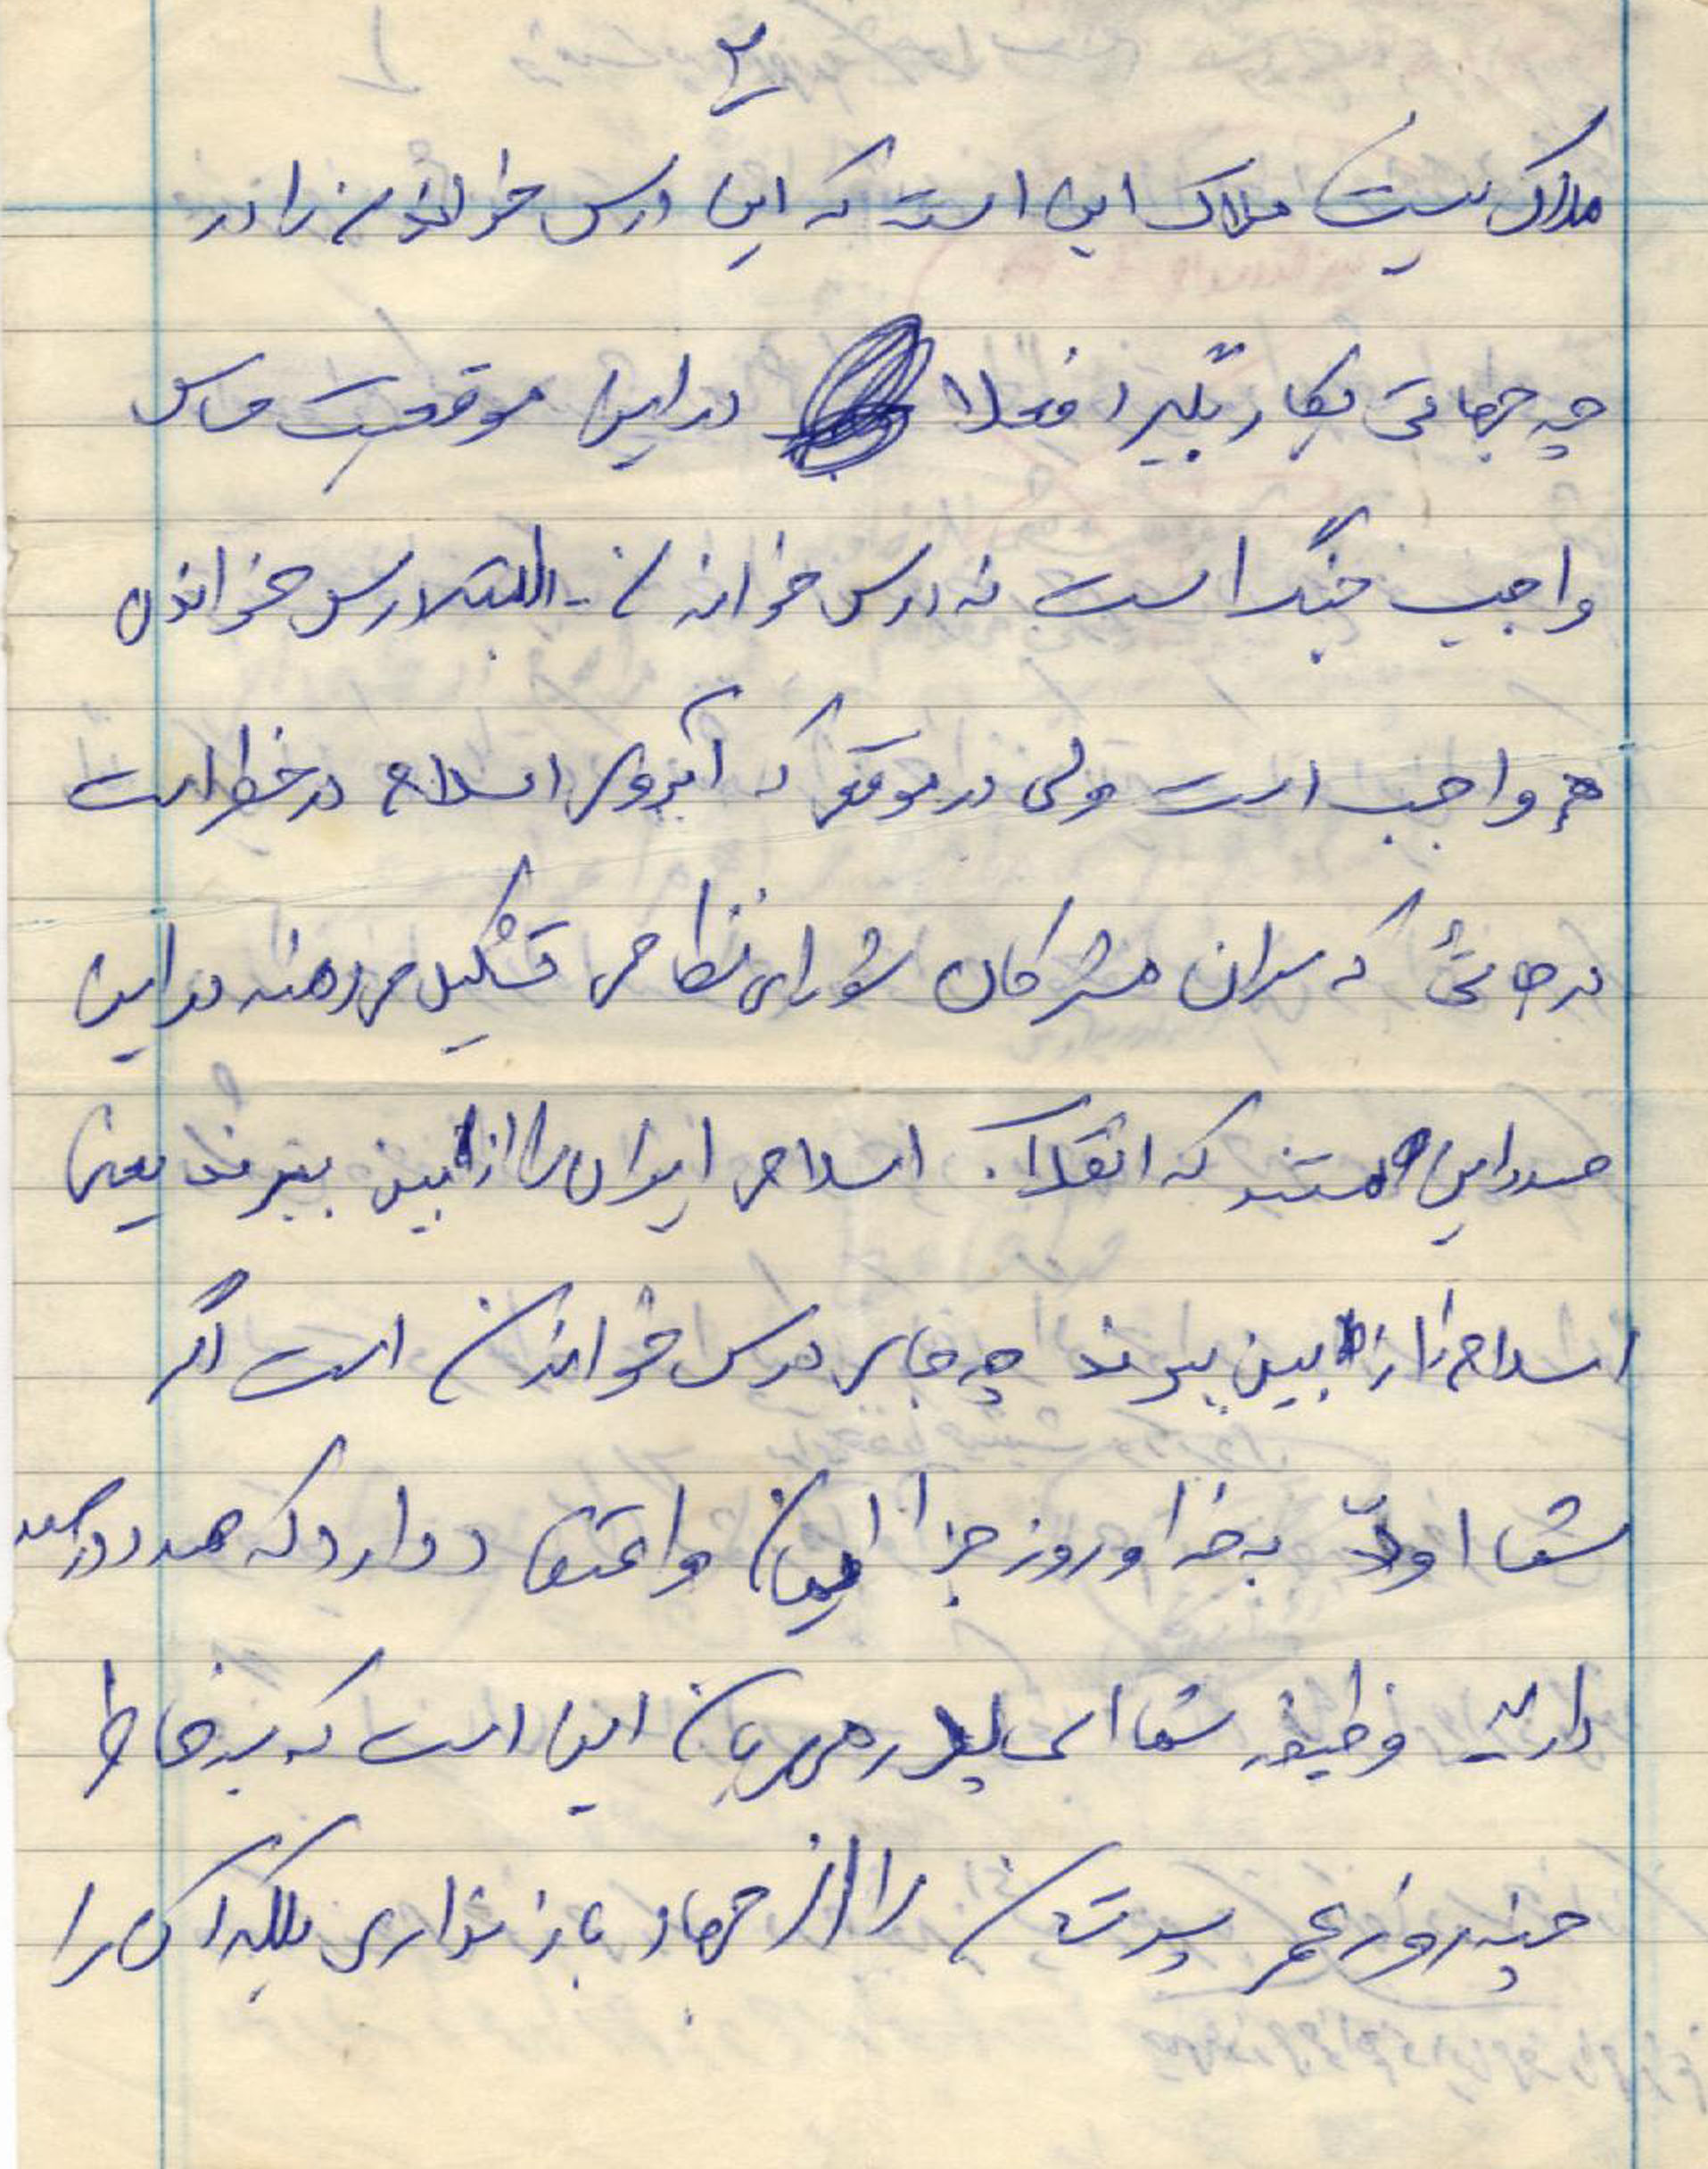 ۲
ملاک نیست ملاک این است که این درس خواندن را در
چه جهاتی بکار بگیرد فعلا در این موقعیت حساس
واجب جنگ است نه درس خواندن - البته درس خواندن
هم واجب است ولی در موقعی که آبروی اسلام در خطر است
در جائی که سران مشرکان شورای نظامی تشکیل می دهند در این
صدد این هستند که انقلاب اسلامی ایران را از بین ببرند یعنی
اسلام را از بین ببرند چه جای درس خواندن است اگر
شما اولا به خدا و روز جزا ایمان و اعتقاد دارد که صد در صد
دارید وظیفه شما ای پدر مهربان این است که به خاطر
چند روز عمر پسرتان را از جهاد باز نداری بلکه آن را